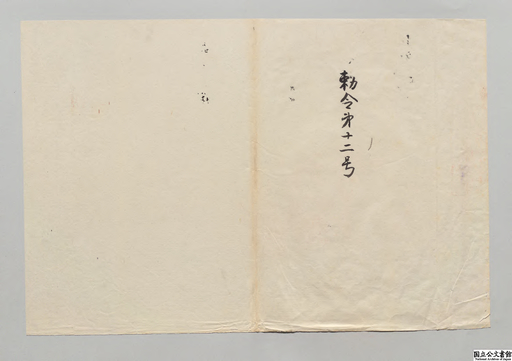 勅令第十二号
国立公文書館
National Archives of Japan